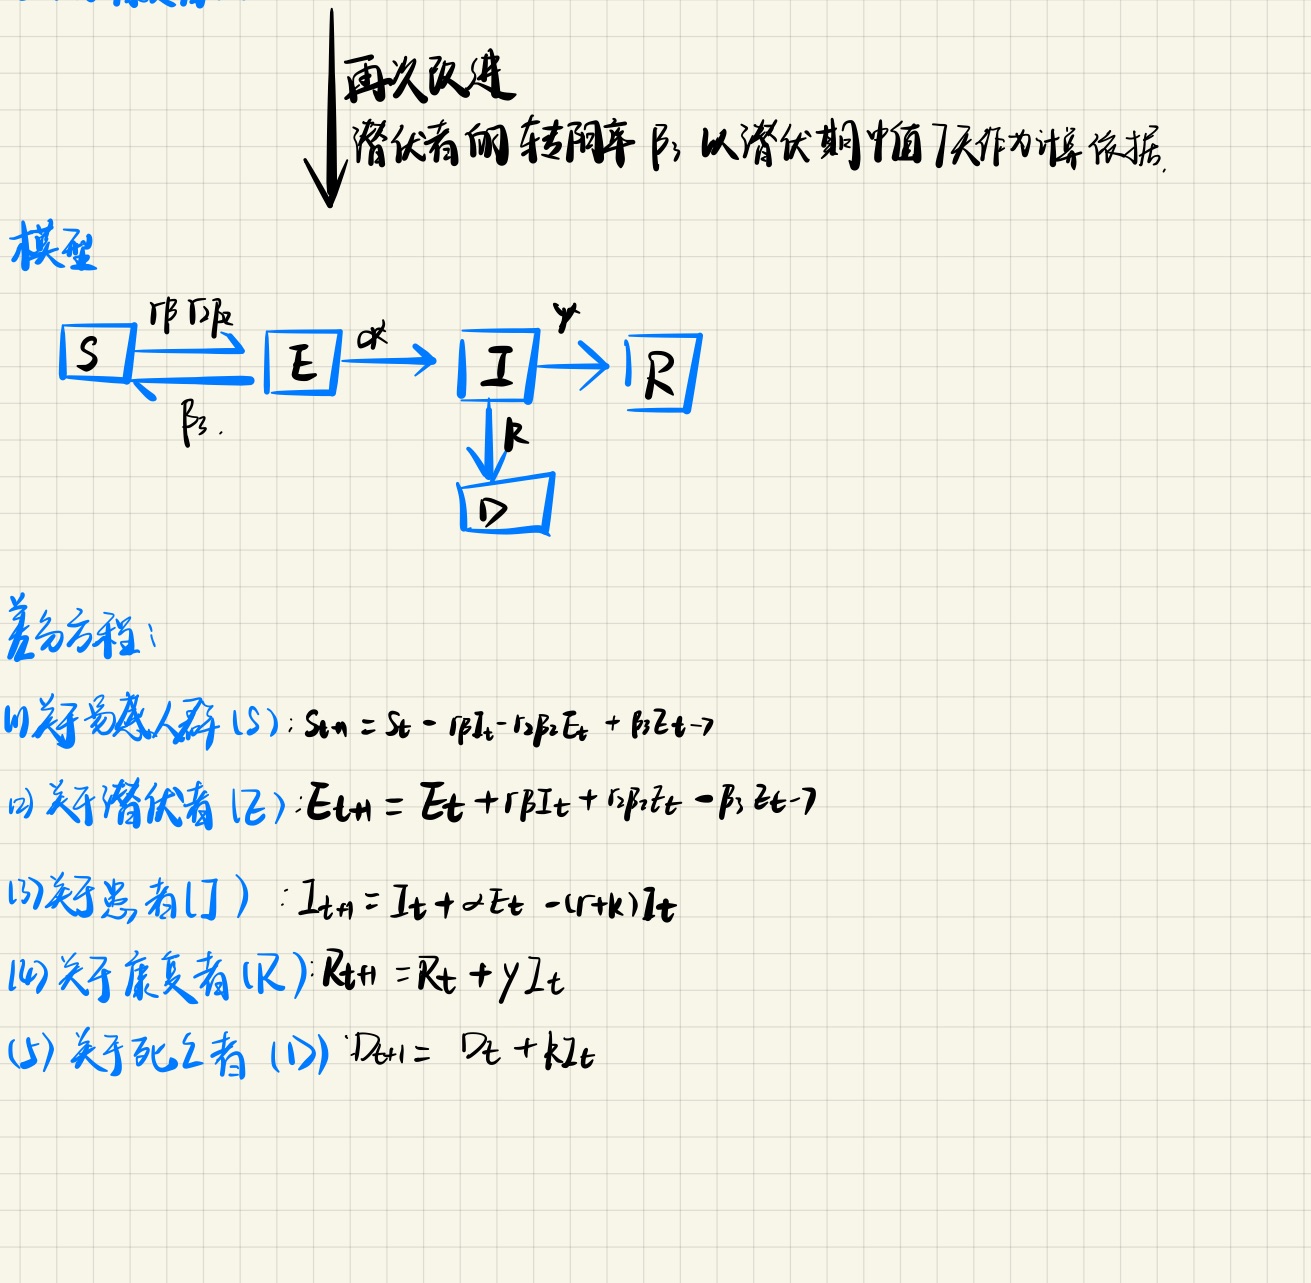 再次改进
潜伏者的转阴率 β₃ 以潜伏期中值7天作为计算依据.
模型
rβ r₂β₂
S E α I γ R
β₃.
k
D
差分方程:
(1)关于易感人群(S): Sₜ₊₁ = Sₜ - rβIₜ - r₂β₂Eₜ + β₃Eₜ₋₇
(2) 关于潜伏者(E): Eₜ₊₁ = Eₜ + rβIₜ + r₂β₂Eₜ - β₃Eₜ₋₇
(3)关于患者(I) : Iₜ₊₁ = Iₜ + αEₜ - (r+k)Iₜ
(4) 关于康复者(R): Rₜ₊₁ = Rₜ + γIₜ
(5) 关于死亡者 (D) : Dₜ₊₁ = Dₜ + kIₜ